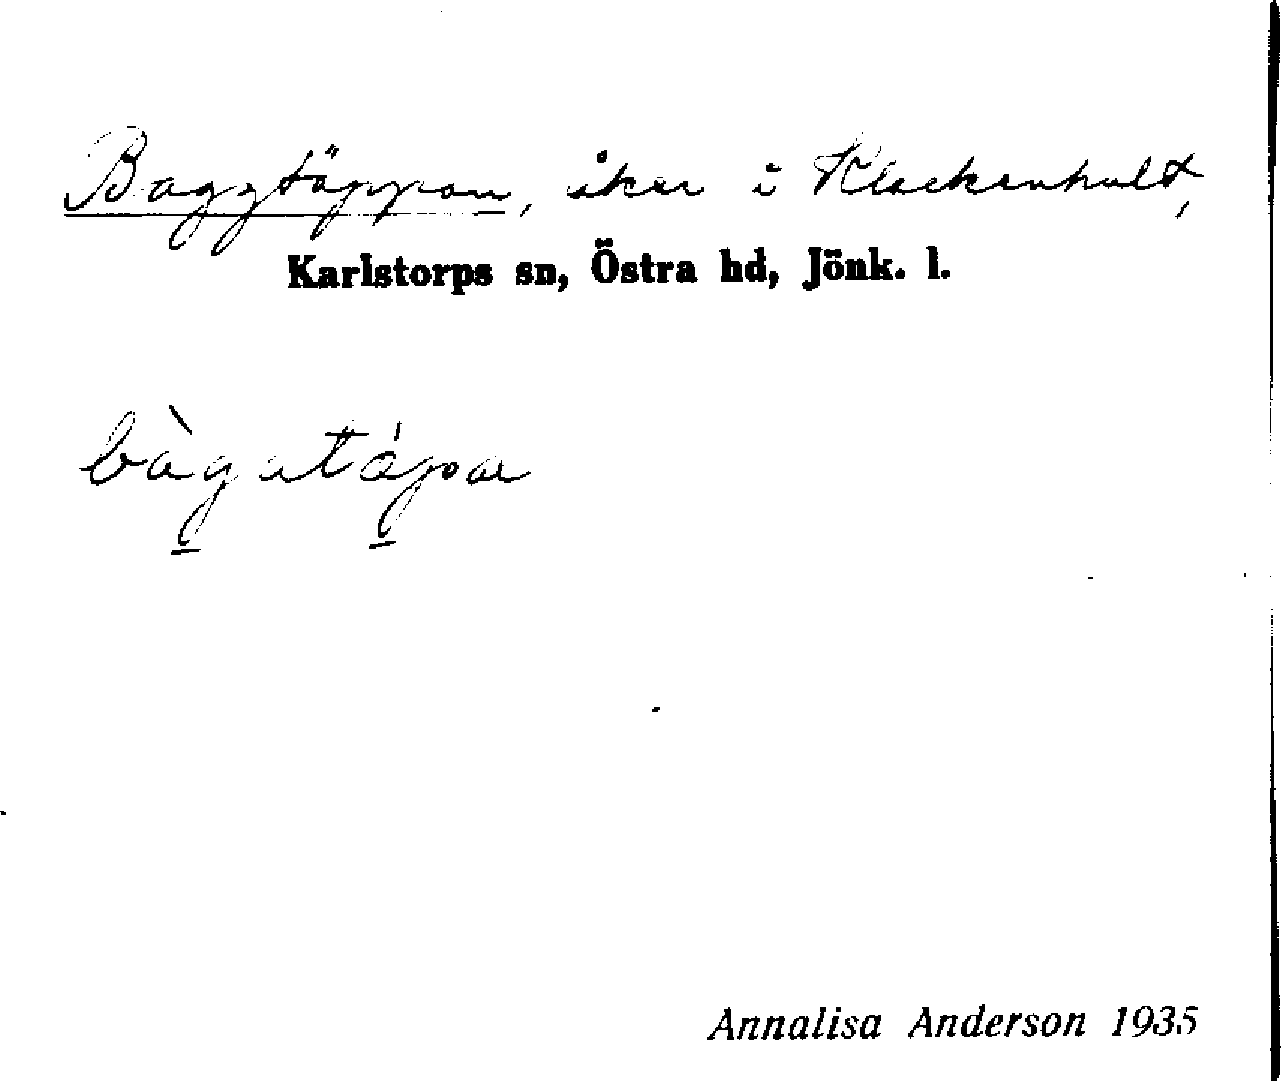 Baggtäppan, åker i Klackenhult,
Karlstorps sn, Östra hd, Jönk. l.
bàgatápa
Annalisa Anderson 1935